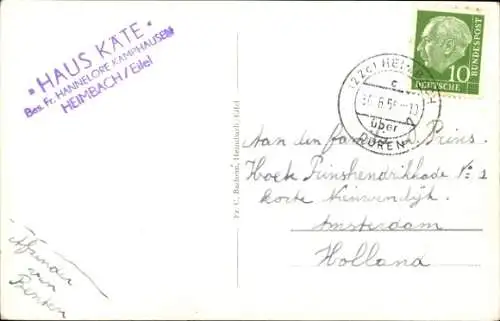 "HAUS KÄTE"
Bes. Fr. HANNELORE KAMPHAUSEN
HEIMBACH/Eifel
10
DEUTSCHE
BUNDESPOST
(22c) HEIMBACH
c
über
DÜREN
Fr. C. Bachem, Heimbach, Eifel
Aan den fam. Prins.
Hoek Prinshendrikkade No 1
korte Nieuwendijk.
Amsterdam
Holland
Afzender
van
Benten